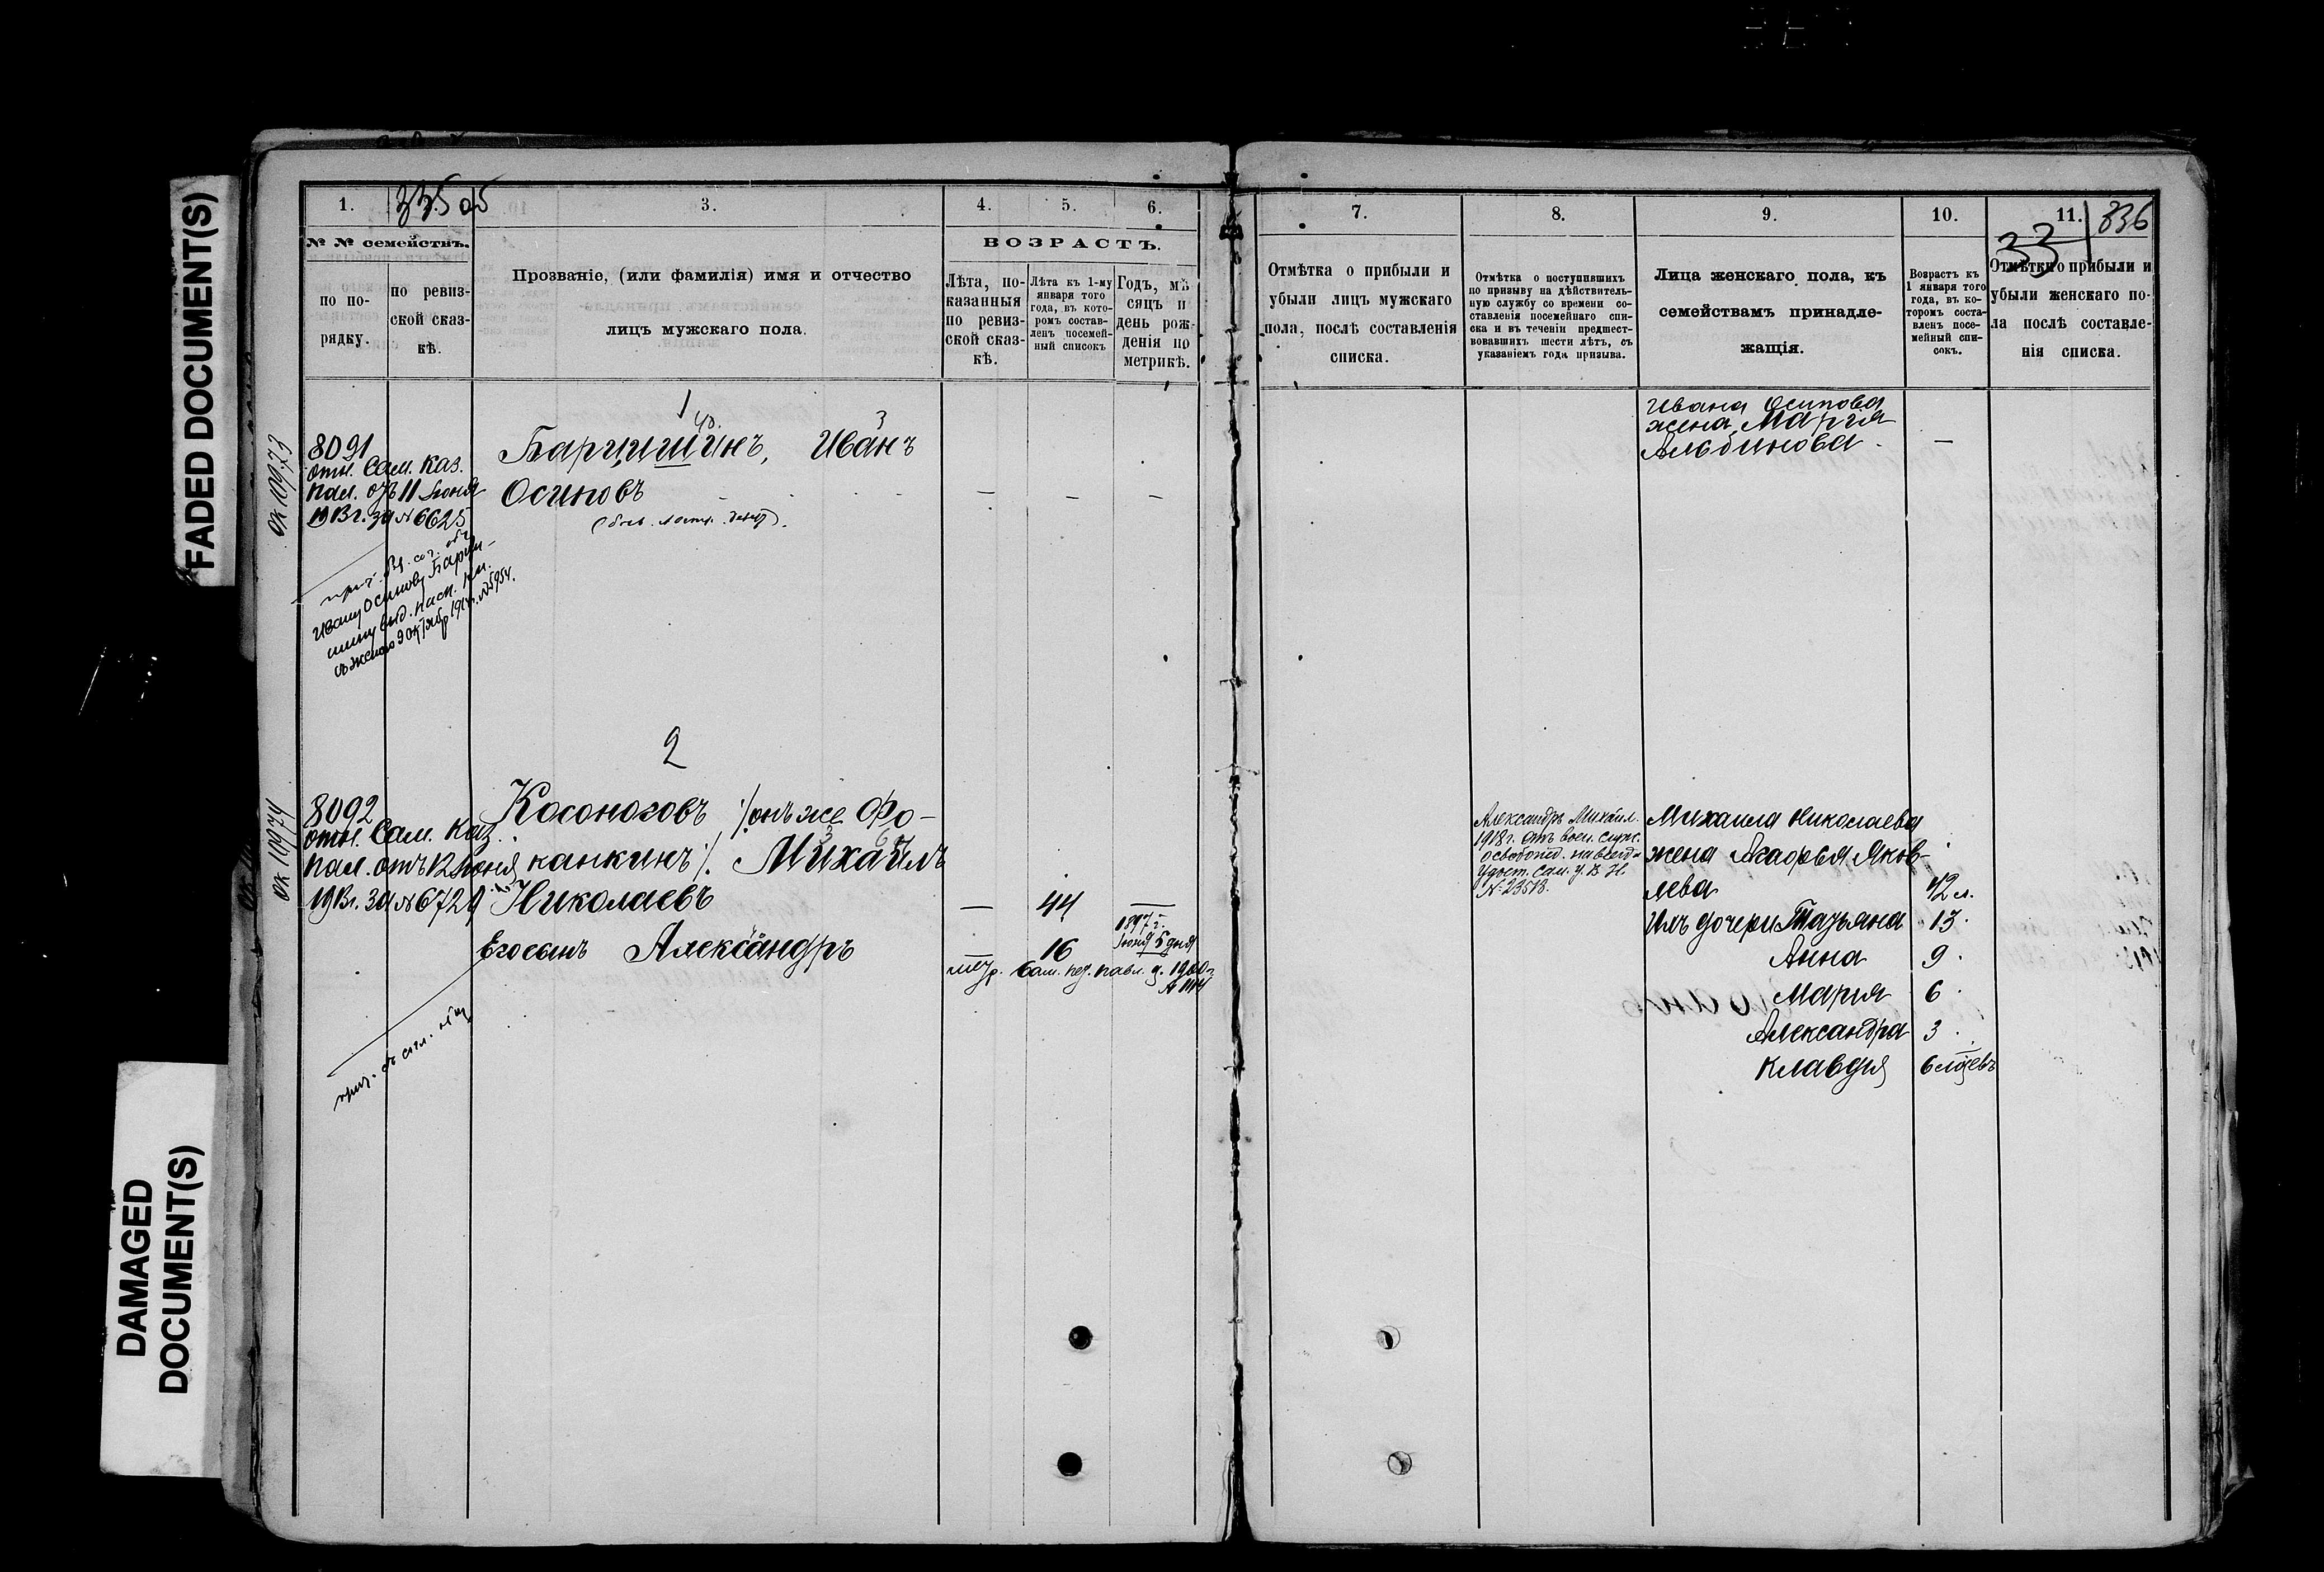 FADED DOCUMENT(S)
DAMAGED
DOCUMENT(S)
1.
3.
4.
5.
6.
№ № семействъ.
по по-
рядку.
по ревиз-
ской сказ-
кѣ.
Прозваніе, (или фамилія) имя и отчество
лицъ мужскаго пола.
ВОЗРАСТЪ.
Лѣта, по-
казанныя
по ревиз-
ской сказ-
кѣ.
Лѣта къ 1-му
января того
года, въ кото-
ромъ состав-
ленъ посемей-
ный списокъ
Годъ, мѣ-
сяцъ и
день рож-
денія по
метрикѣ.
ок 10973
8091
отн. Сам. Каз.
пал. отъ 11 Іюня
1913 г. за № 6625
1
Барцишинъ, Иванъ
Осиповъ
— — —
Ивану Осипову Барци-
шину выд. пасп. кн.
2
ок 10974
8092
отн. Сам. Каз.
пал. отъ 12 Іюня
1913 г. за № 6729
Косоноговъ /онъ же Фо-
канкинъ/. Михаилъ
Николаевъ — 44 —
1897 г.
Іюня 5 дня
Его сынъ Александръ 16
7.
8.
9.
10.
11.
336
33
Отмѣтка о прибыли и
убыли лицъ мужскаго
пола, послѣ составленія
списка.
Отмѣтка о поступившихъ
по призыву на дѣйствитель-
ную службу со времени со-
ставленія посемейнаго спи-
ска и въ теченіи предшест-
вовавшихъ шести лѣтъ, съ
указаніемъ года призыва.
Лица женскаго пола, къ
семействамъ принадле-
жащія.
Возрастъ къ
1 января того
года, въ ко-
торомъ соста-
вленъ посе-
мейный спи-
сокъ.
Отмѣтки о прибыли и
убыли женскаго по-
ла послѣ составле-
нія списка.
Ивана Осипова
жена Марія
Альбинова —
Александръ Михаил.
1918 г. отъ воен. служ.
освобожд. навсегда
Удост. Сам. у. В. Н.
№ 23518.
Михаила Николаева
жена Агафья Яков-
лева 42 л.
Ихъ дочери Татьяна 13
Анна 9
Мария 6
Александра 3
Клавдия